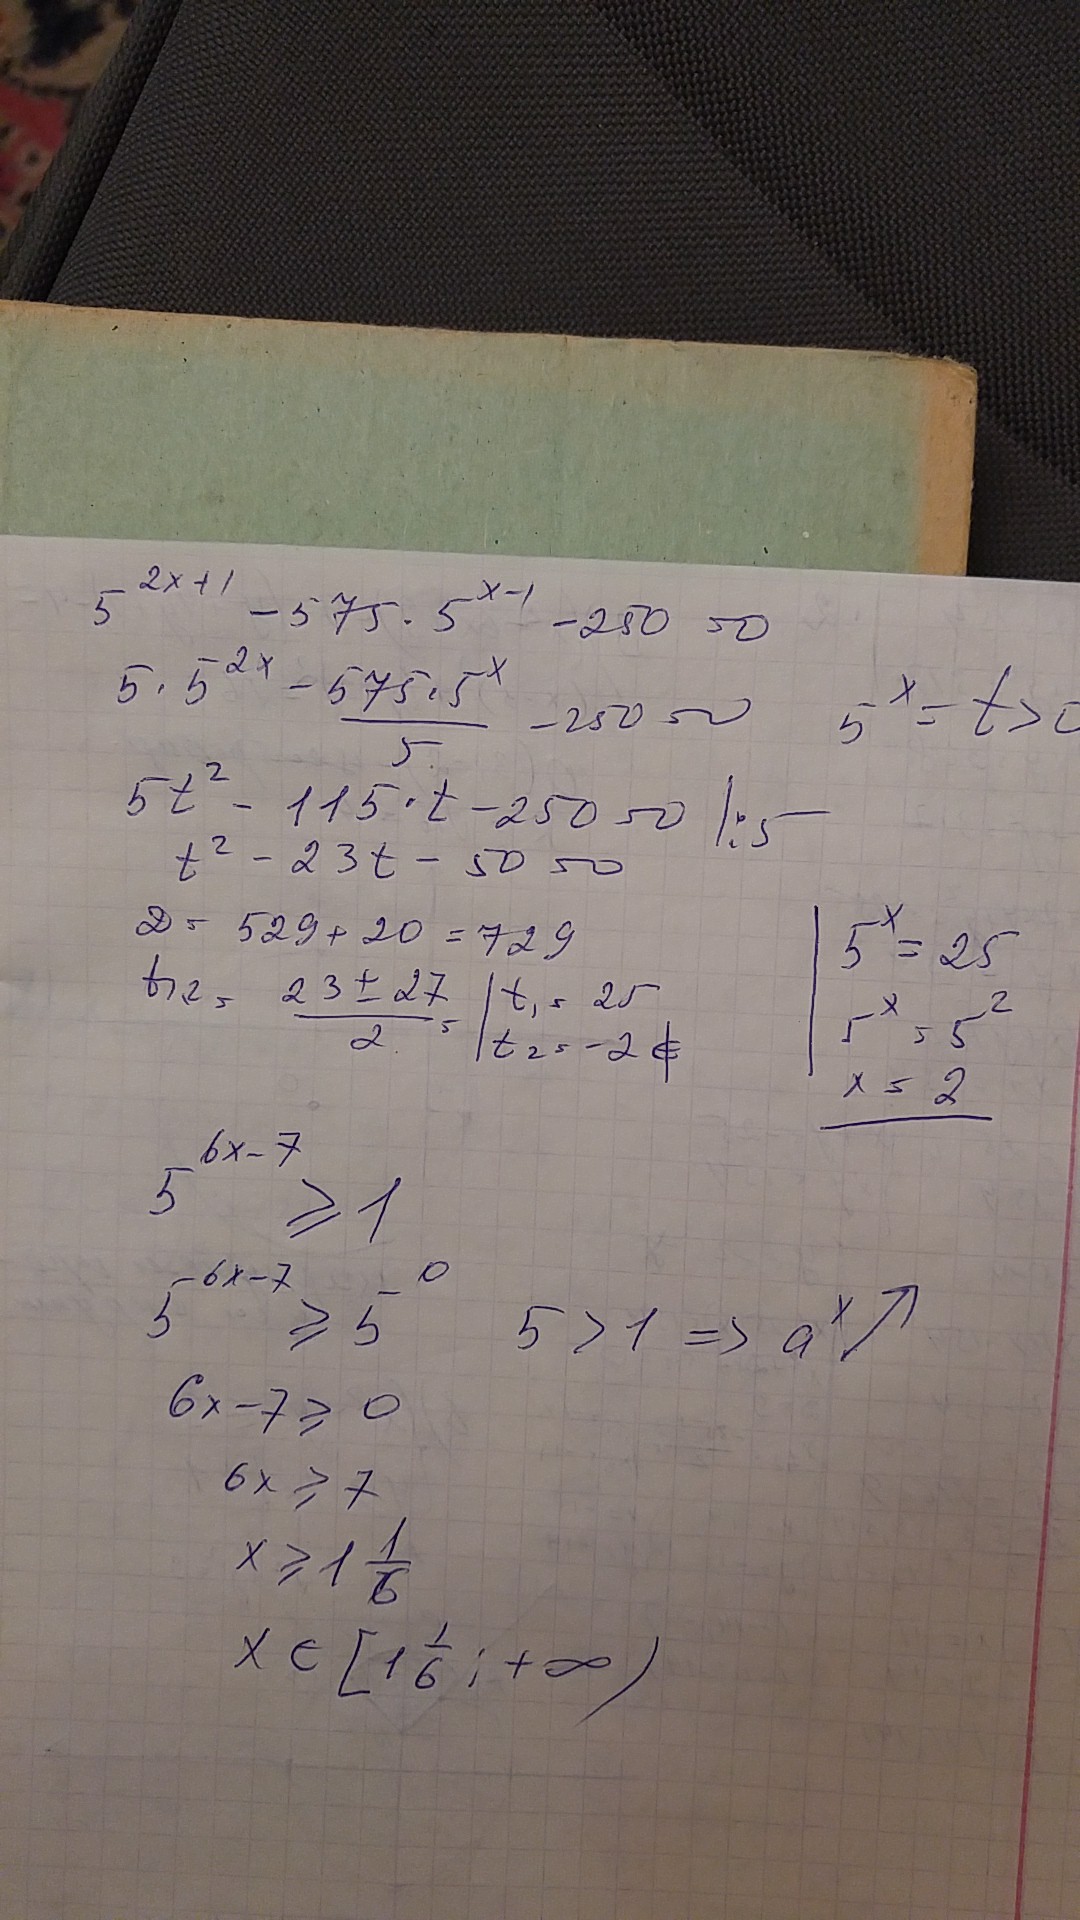 5^{2x+1} - 575 · 5^{x-1} - 250 = 0
5 · 5^{2x} - \frac{575 · 5^x}{5} - 250 = 0    5^x = t > 0
5t^2 - 115 · t - 250 = 0 |:5
t^2 - 23t - 50 = 0
D = 529 + 20 = 729
t_{1,2} = \frac{23 ± 27}{2} = | t_1 = 25
t_2 = -2 ∉
5^x = 25
5^x = 5^2
x = 2
5^{6x-7} ⩾ 1
5^{6x-7} ⩾ 5^0    5 > 1 => a^x ↗
6x - 7 ⩾ 0
6x ⩾ 7
x ⩾ 1\frac{1}{6}
x ∈ [1\frac{1}{6}; +∞)